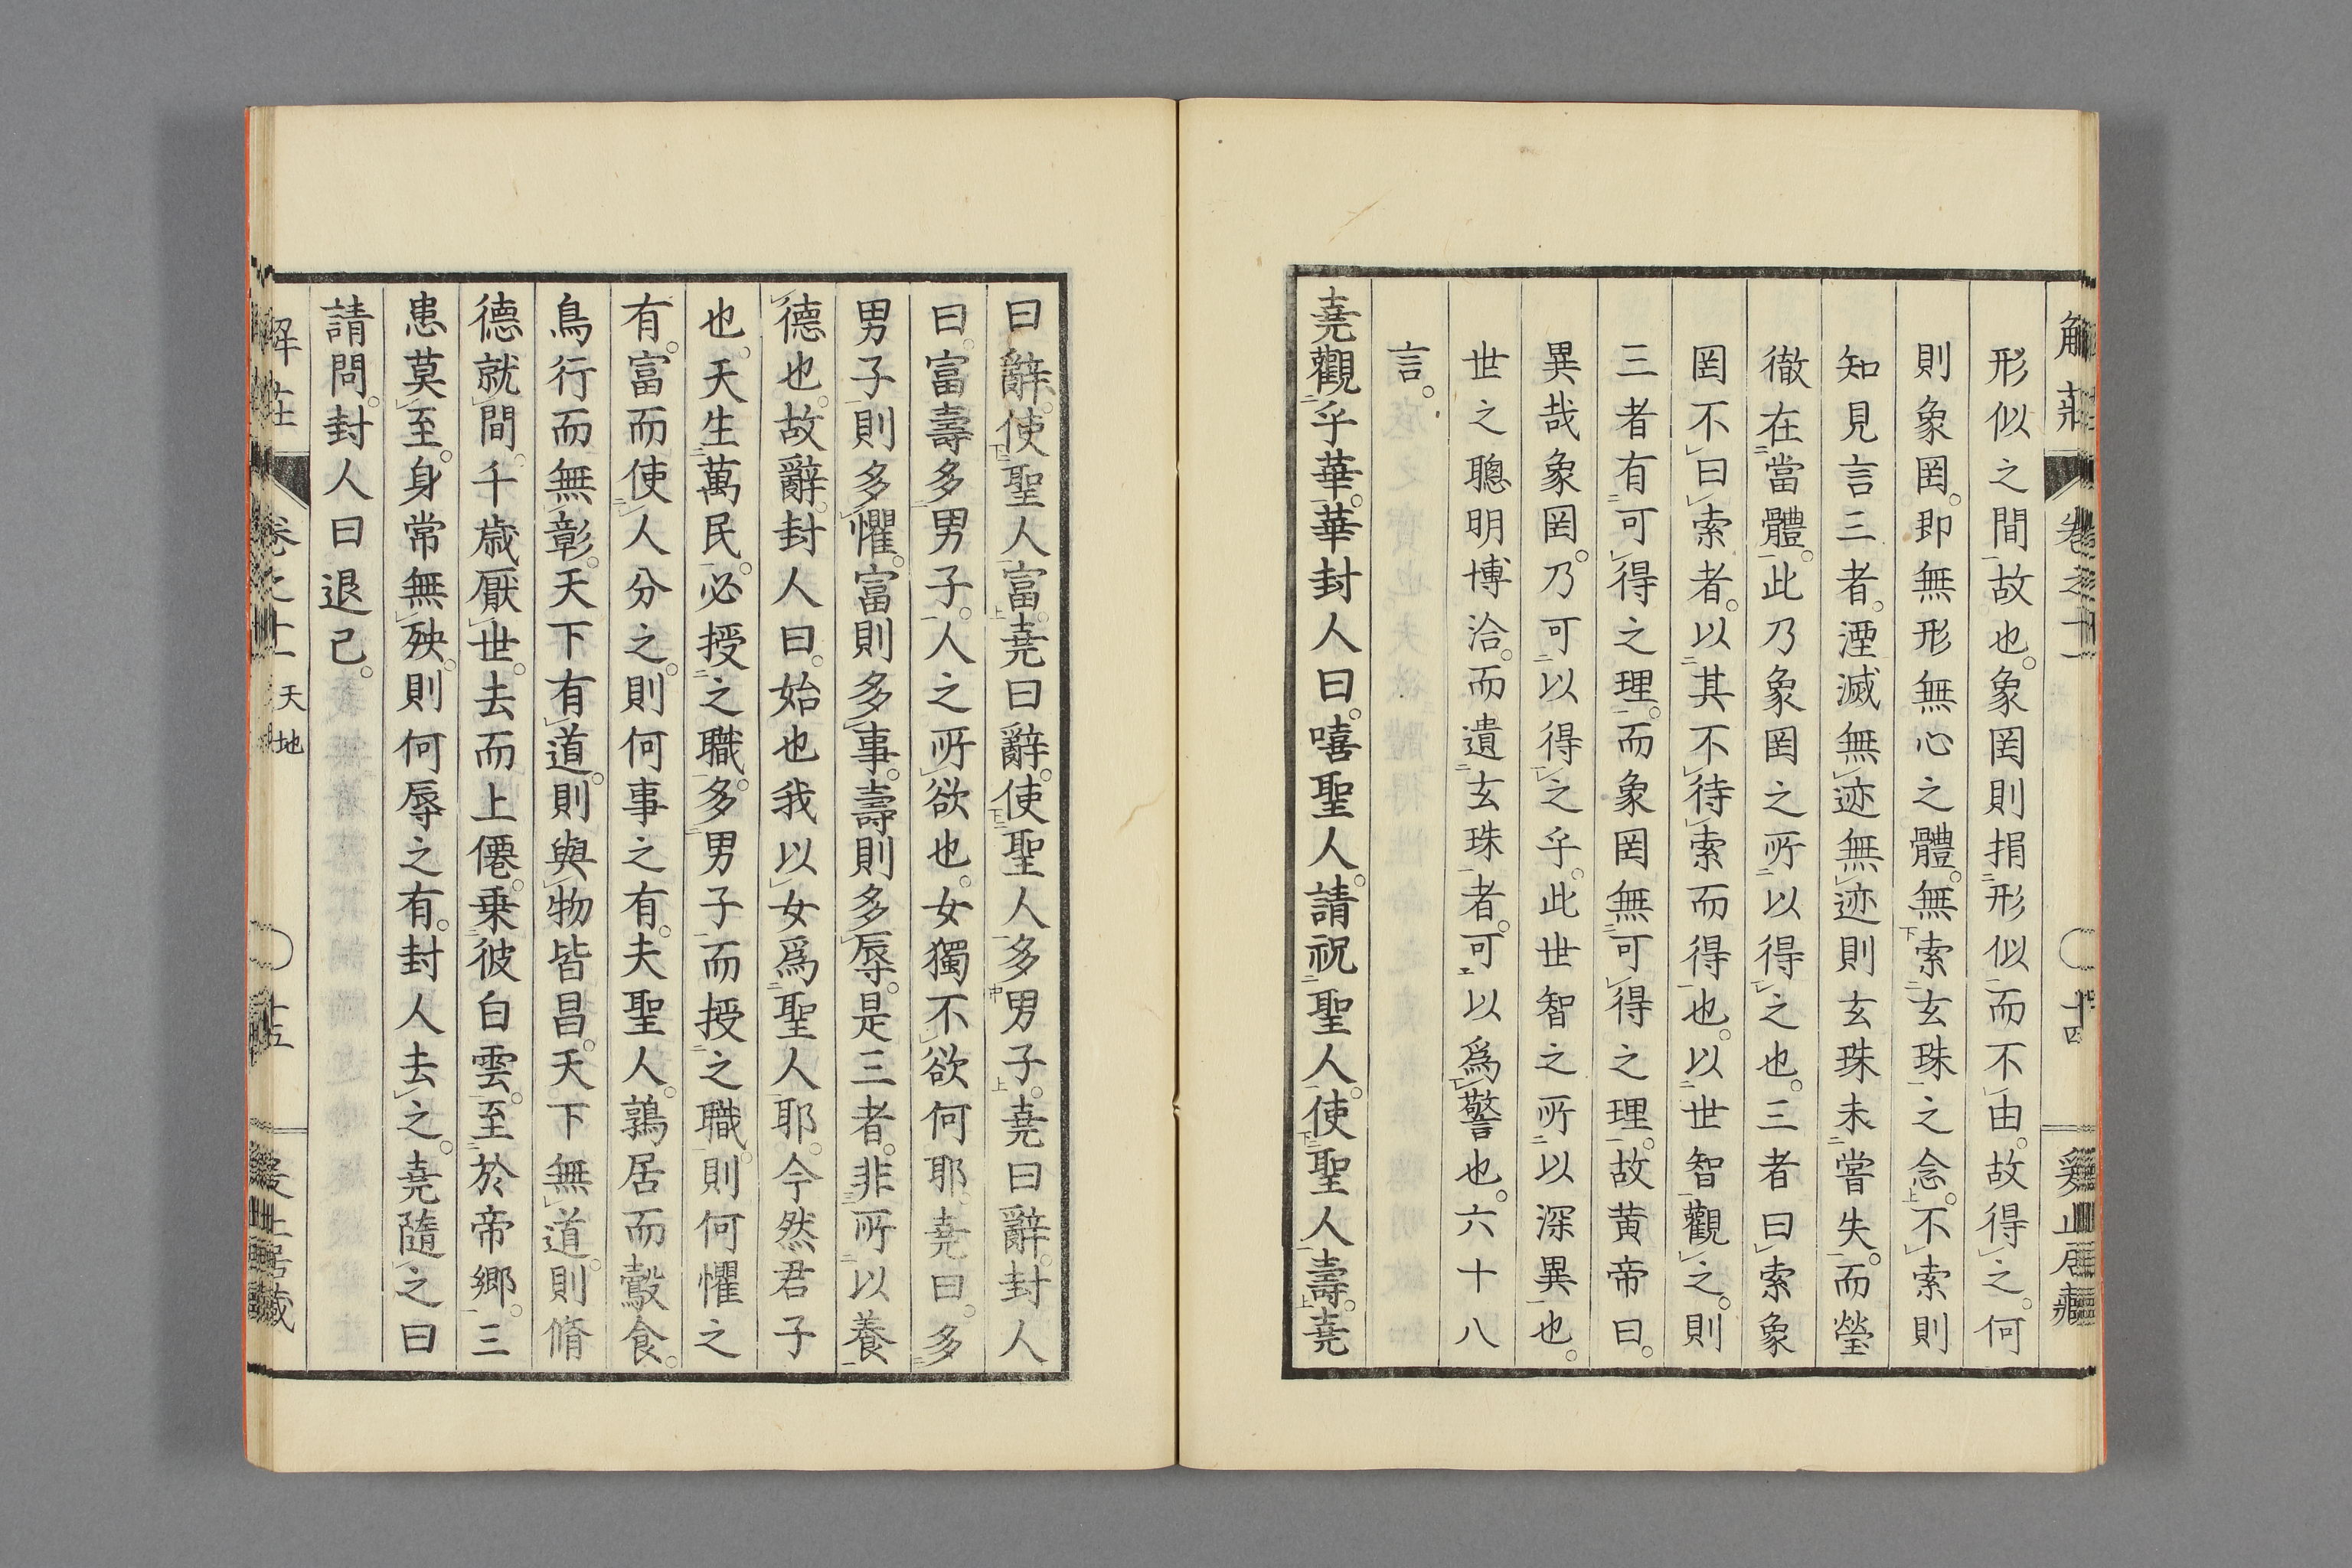 形似之間故也。象罔則捐形似而不由。故得之。何
則象罔。即無形無心之體。無索玄珠之念。不索則
知見言三者。湮滅無迹無迹則玄珠未嘗失。而瑩
徹在當體。此乃象罔之所以得之也。三者曰索象
罔不曰索者。以其不待索而得也。以世智觀之。則
三者有可得之理。而象罔無可得之理。故黃帝曰。
異哉象罔。乃可以得之乎。此世智之所以深異也。
世之聰明博洽。而遺玄珠者。可以爲警也。六十八
言。
堯觀乎華。華封人曰。嘻聖人。請祝聖人。使聖人壽。堯
曰辭。使聖人富。堯曰辭。使聖人多男子。堯曰辭。封人
曰。富壽多男子。人之所欲也。女獨不欲何耶。堯曰。多
男子則多懼。富則多事。壽則多辱。是三者。非所以養
德也。故辭。封人曰。始也我以女爲聖人耶。今然君子
也。天生萬民。必授之職。多男子而授之職。則何懼之
有。富而使人分之。則何事之有。夫聖人。鶉居而鷇食。
鳥行而無彰。天下有道。則與物皆昌。天下無道。則脩
德就間。千歲厭世。去而上僊。乘彼白雲。至於帝鄉。三
患莫至。身常無殃。則何辱之有。封人去之。堯隨之曰
請問。封人曰退已。
解莊
卷之十一
天地
十五